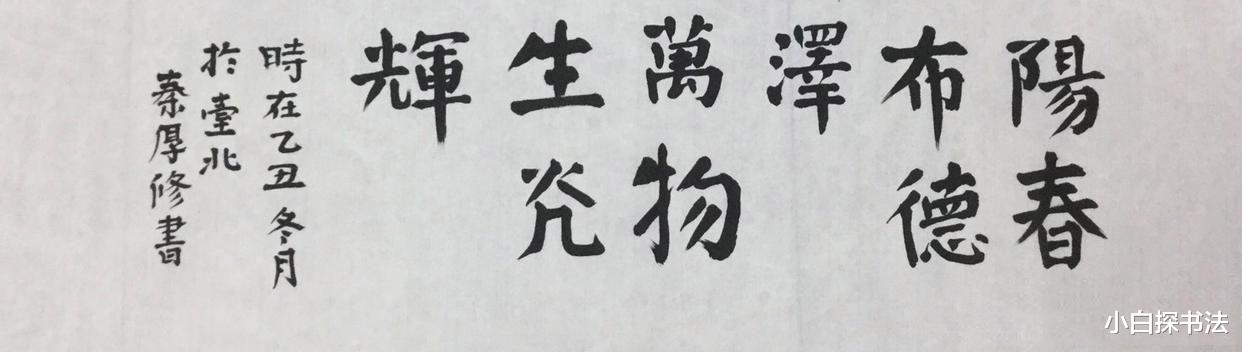 陽春
布德
澤
萬物
生光
輝
時在乙丑冬月
於臺北
秦厚修書
小白探书法